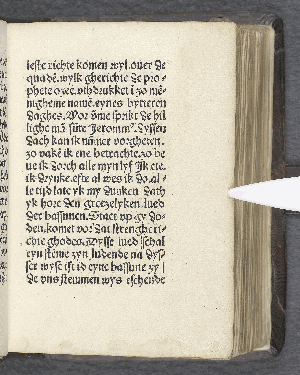 leste richte komen wyl. ouer de
quadē. wylk gherichte de pro-
phete ozee. vthdrukket i zo mē-
nigheme nauē. eynes bytteren
daghes. Vor vme sprikt de hil
lighe mā sūte Jeronim⁹. Dyssen
dach kan ik nūmer vorgheten.
zo vakē ik ene betrachte. zo be
ue ik dorch alle myn lyf Jk ete.
ik drynke. efte al wes ik do. al-
le tijd late yk my dunken dath
yk hore den greezelyken lued
der bassunen. Staet vp gy do-
den. komet vor dat strenghe ri-
chte ghodes. Wysse lued schal
eyn stēme zyn ludende na dys-
ser wyse ift id eyne bassune zy
de vns stemmen wys eschende